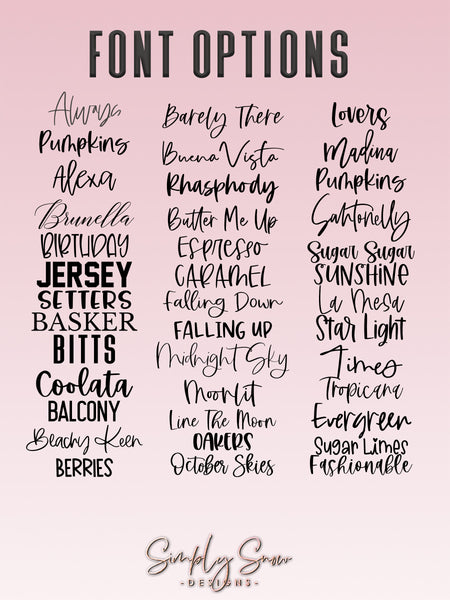 FONT OPTIONS
Always
Pumpkins
Alexa
Brunella
BIRTHDAY
JERSEY
SETTERS
BASKER
BITTS
Coolata
BALCONY
Beachy Keen
BERRIES
Barely There
Buena Vista
Rhasphody
Butter Me Up
ESPRESSO
CARAMEL
Falling Down
FALLING UP
Midnight Sky
Moonlit
Line The Moon
OAKERS
October Skies
Lovers
Madina
Pumpkins
Sahtonelly
Sugar Sugar
SUNSHINE
La Mesa
Star Light
Times
Tropicana
Evergreen
Sugar Limes
Fashionable
Simply Snow
-DESIGNS-